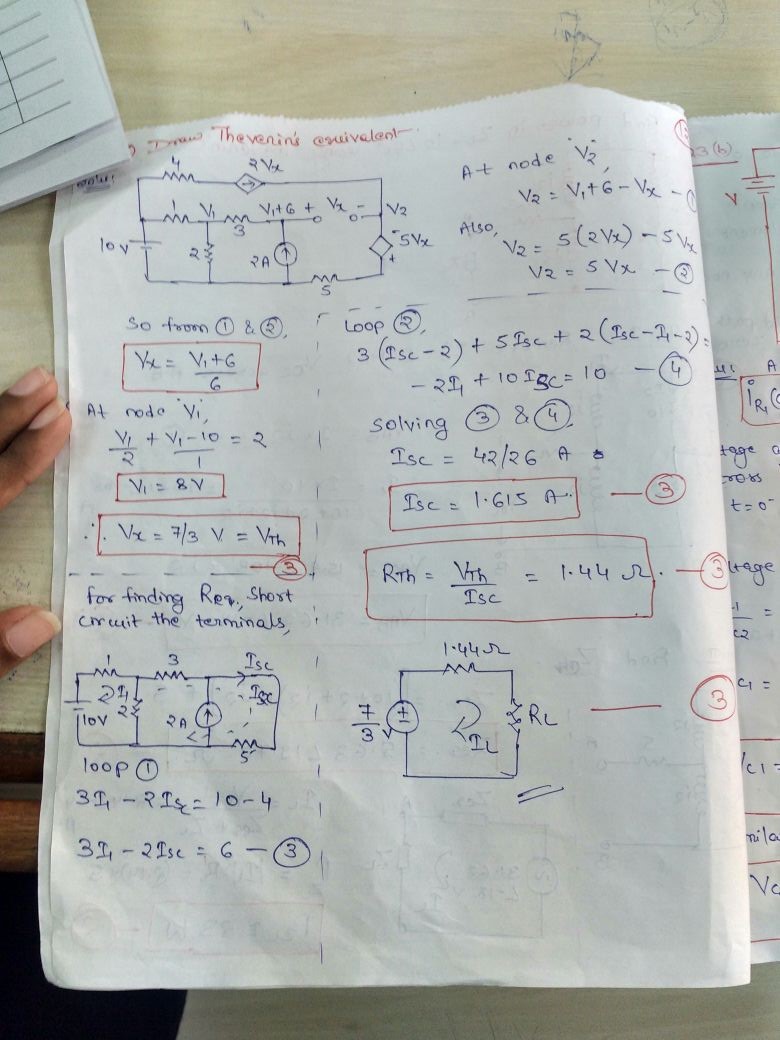 Draw Thevenin's equivalent
4
2Vx
1
V1
3
V1+6
+ Vx -
V2
10V
2
2A
-
5Vx
+
5
At node 'V2'
V2 = V1+6 - Vx - 1
Also,
V2 = 5(2Vx) - 5Vx
V2 = 5Vx - 2
So from 1 & 2,
Vx = V1+6 / 6
At node 'V1',
V1/2 + V1-10/1 = 2
V1 = 8V
∴ Vx = 7/3 V = VTh
3
For finding Req, Short
circuit the terminals,
1
3
Isc
I1
2
Isc
10V
2A
5
loop 1
3I1 - 2Isc = 10-4
3I1 - 2Isc = 6 - 3
Loop 2,
3(Isc-2) + 5Isc + 2(Isc-I1-2) =
-2I1 + 10Isc = 10 - 4
solving 3 & 4
Isc = 42/26 A
Isc = 1.615 A - 3
RTh = VTh/Isc = 1.44 Ω. - 3
1.44Ω
7/3 V
±
IL
RL
3
3(b)
V
A
iR1(
t=0-
ltage
C2
C1 =
/C1 =
Vc